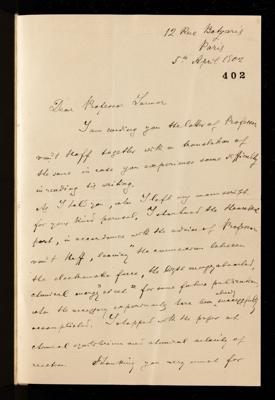 12 Rue
Paris
5th April 1902
402
Dear Professor Larmor
I am sending you the letter of Professor
van't Hoff together with a translation of
the same in case you experience some difficulty
in reading his writing.
As I told you, when I left my manuscript
for your kind perusal, I shortened the theoretical
part, in accordance with the advice of Professor
van't Hoff, leaving "the connexion between
the electromotive force, the
chemical energy etc etc" for some future publication,
when the necessary experiments have been successfully
already
accomplished. I stopped with the paper at
chemical equilibrium and chemical velocity of
reaction. Thanking you very much for